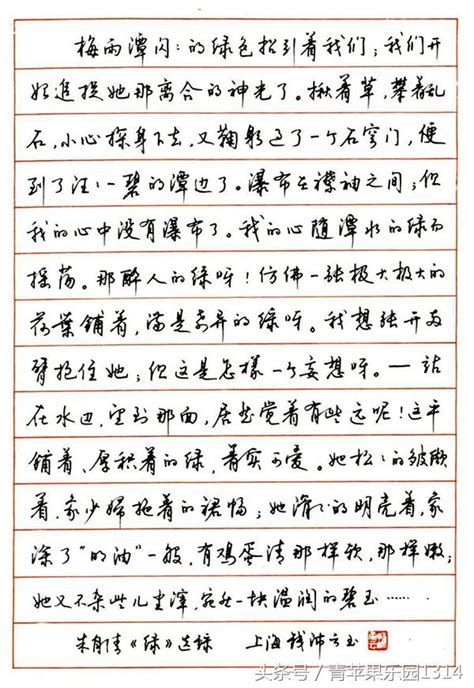 梅雨潭闪:的绿色招引着我们;我们开
始追捉她那离合的神光了。揪着草,攀着乱
石,小心探身下去,又鞠躬过了一个石穹门,便
到了汪:一碧的潭边了。瀑布在襟袖之间;但
我的心中没有瀑布了。我的心随潭水的绿而
摇荡。那醉人的绿呀!仿佛一张极大极大的
荷叶铺着,满是奇异的绿呀。我想张开两
臂抱住她;但这是怎样一个妄想呀。—站
在水边,望到那面,居然觉着有些远呢!这平
铺着、厚积着的绿,着实可爱。她松:的皱缬
着,象少妇拖着的裙幅;她滑:的明亮着,象
涂了“明油”一般,有鸡蛋清那样软,那样嫩;
她又不杂些儿尘滓,宛然一块温润的碧玉……
朱自清《绿》选录 上海钱沛云书
头条号/青苹果乐园1314